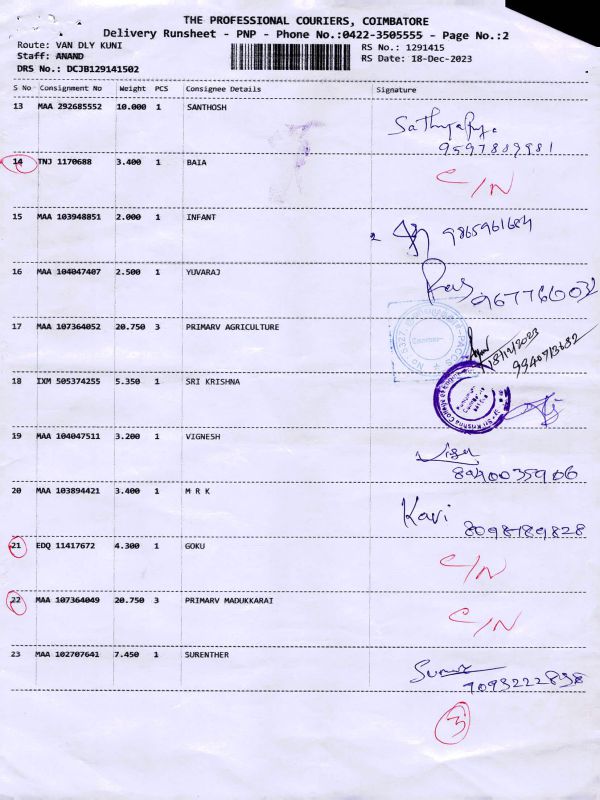 THE PROFESSIONAL COURIERS, COIMBATORE
Delivery Runsheet - PNP - Phone No.:0422-3505555 - Page No.:2
Route: VAN DLY KUNI
Staff: ANAND
DRS No.: DCJB129141502
RS No.: 1291415
RS Date: 18-Dec-2023
S No Consignment No Weight PCS Consignee Details Signature
13 MAA 292685552 10.000 1 SANTHOSH
9597889981
14 TNJ 1170688 3.400 1 BAIA C/N
15 MAA 103948851 2.000 1 INFANT 9865961684
16 MAA 104047407 2.500 1 YUVARAJ
9677660032
17 MAA 107364052 20.750 3 PRIMARV AGRICULTURE
18/12/2023
9940713682
18 IXM 505374255 5.350 1 SRI KRISHNA
19 MAA 104047511 3.200 1 VIGNESH
8940035906
20 MAA 103894421 3.400 1 M R K Kavi
8098789828
21 EDQ 11417672 4.300 1 GOKU C/N
22 MAA 107364049 20.750 3 PRIMARV MADUKKARAI C/N
23 MAA 102707641 7.450 1 SURENTHER
7093222898
3